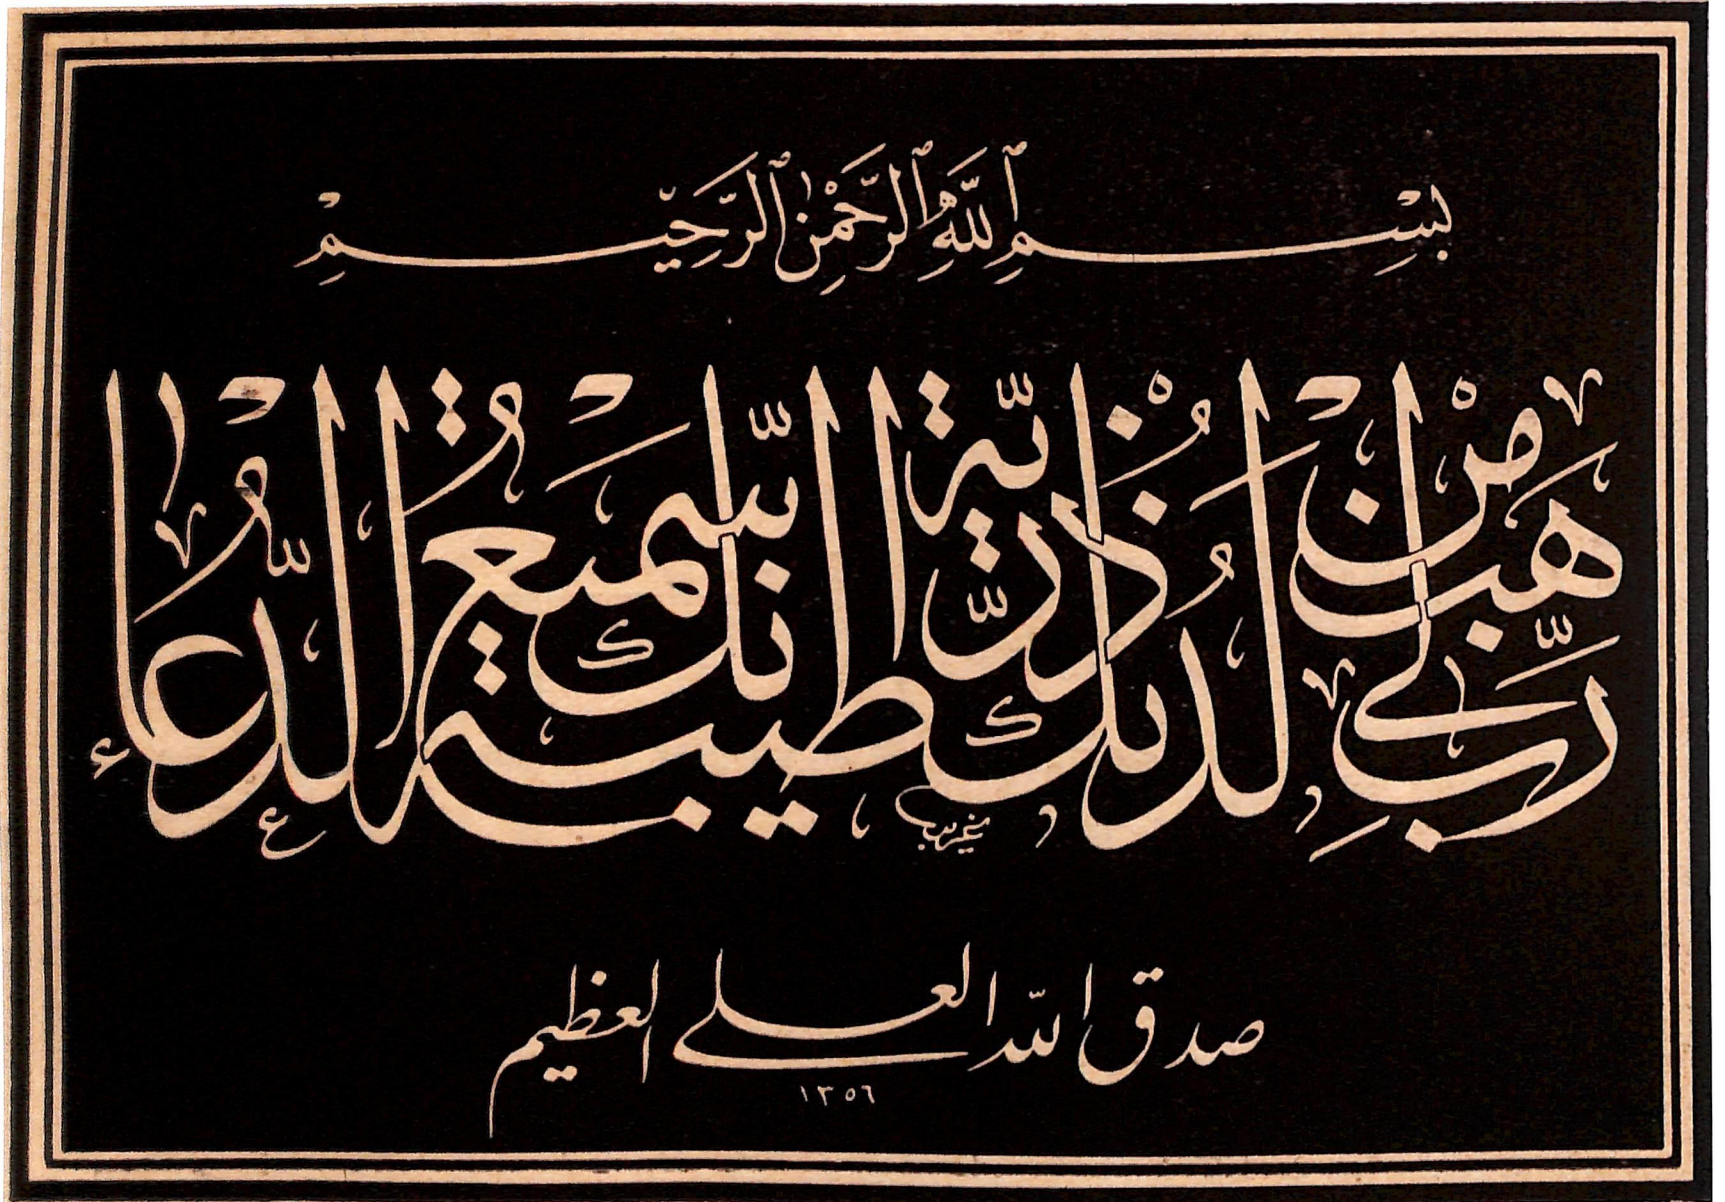 بِسْمِ ٱللَّهِ ٱلرَّحْمٰنِ ٱلرَّحِيْمِ
رَبِّ هَبْ لِي مِنْ لَدُنْكَ ذُرِّيَّةً طَيِّبَةً اِنَّكَ سَمِيعُ الدُّعَاءِ
صدق الله العلي العظيم
١٣٥٦